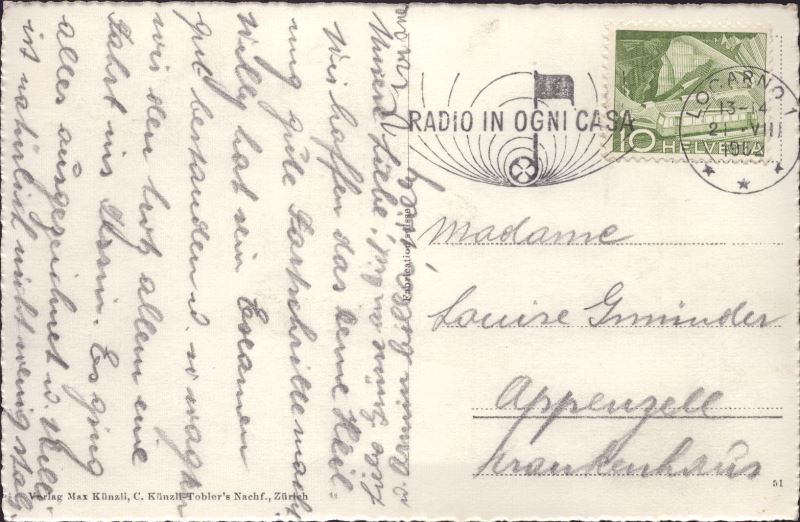 Locarno
Unsere Liebe!
Wir hoffen das deine Heil
ung gute Fortschritte mach
Willy hat sein Examen
gut bestanden u. so wagten
wir den trotz allem eine
Fahrt ins Tessin. Es ging
alles ausgezeichnet u. Willi
ist natürlich nicht wenig stol
RADIO IN OGNI CASA
LOCARNO 1
13-14
21 VIII
10 HELVETIA
Fabrication suisse
Madame
Louise Gmünder
Appenzell
Krankenhaus
Verlag Max Künzli, C. Künzli-Tobler's Nachf., Zürich
51